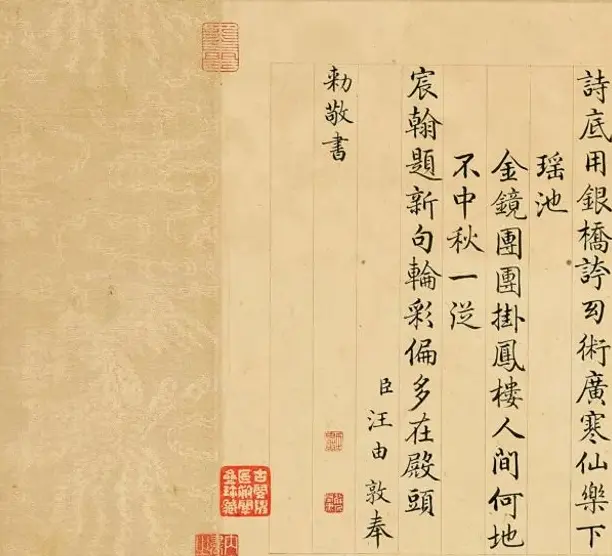 詩底用銀橋誇幻術廣寒仙樂下
瑶池
金鏡團團掛鳳樓人間何地
不中秋一從
宸翰題新句輪彩偏多在殿頭
臣汪由敦奉
勅敬書